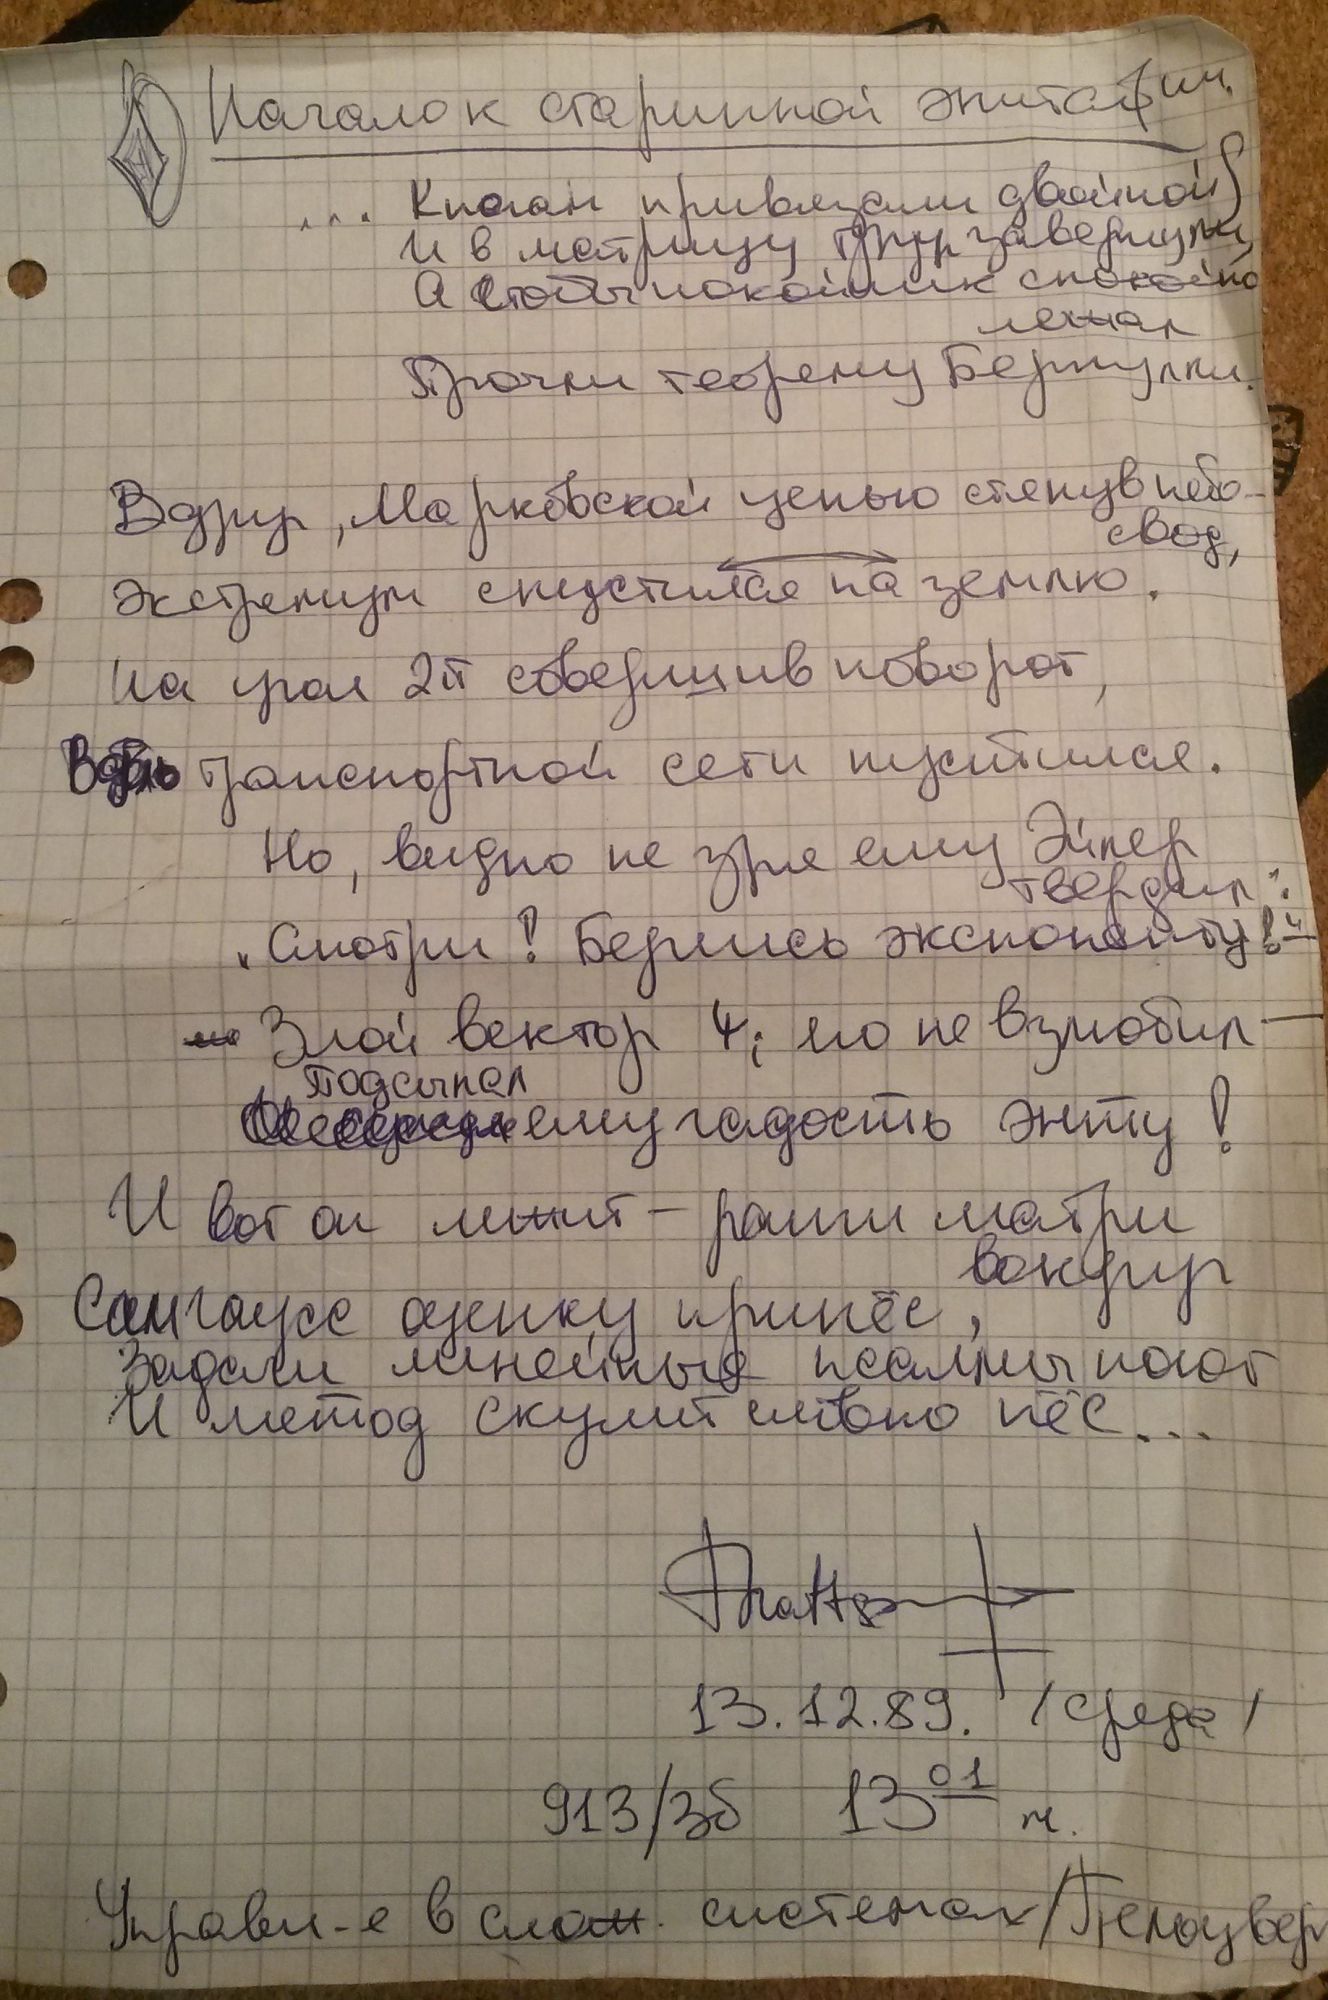 Начало к старинной эпитафии.
... К ногам привязали двойной
И в матрицу труп завернули,
А чтобы покойник спокойно
лежал
Прочли теорему Бернулли.
Вдруг, Марковской цепью стянув небо-
свод,
Экстремум спустился на землю.
На угол 2π совершив поворот,
Вдоль транспортной сети пустился.
Но, видно не зря ему Эйлер
твердил:
"Смотри! Берегись экспоненту!" –
Злой вектор его не взлюбил –
Подсыпал
ему гадость энту!
И вот он лежит – ранги матриц
вокруг
Сам Гаусс оценку принёс,
Задачи линейные псалмы поют
И метод скулит словно пёс...
13.12.89. /среда/
913/3б 13 01 ч.
Управл-е в слож. системах/